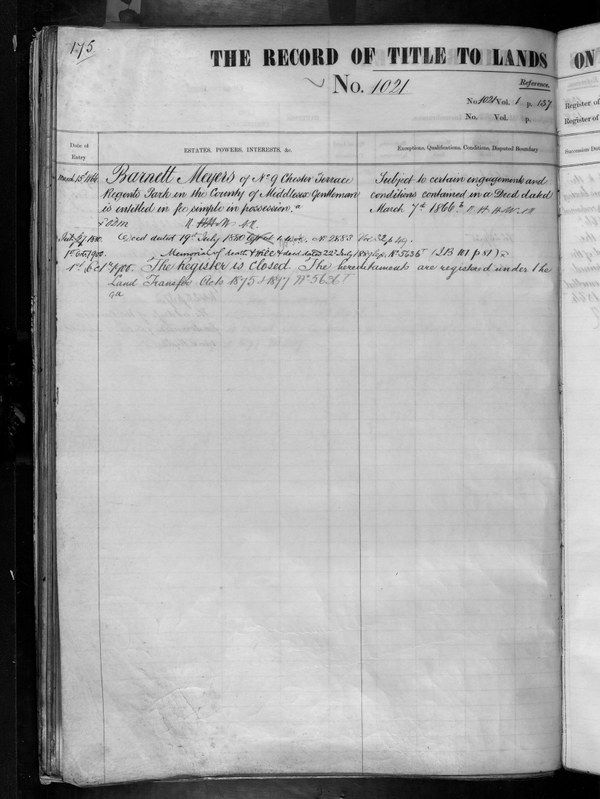 175.
THE RECORD OF TITLE TO LANDS
ON
No. 1021
Reference.
No. 1021 Vol. 1 p. 157
No. Vol. p.
Register of
Register of
Date of Entry
ESTATES, POWERS, INTERESTS, &c.
Exceptions, Qualifications, Conditions, Disputed Boundary
Succession Du
March 15th 1866
Barnett Meyers of No 9 Chester Terrace
Regents Park in the County of Middlesex Gentleman
is entitled in fee simple in possession.
Subject to certain engagements and
conditions contained in a Deed dated
March 7th 1866
Deed dated 19th July 1880 No 2853 Vol 32 p 49.
1st Oct 1900
Memorial of death & deed dated 22nd July 1889 No 5636
1st Oct 1900. The Register is closed. The hereditaments are registered under the
Land Transfer Acts 1875 & 1897 No 5636